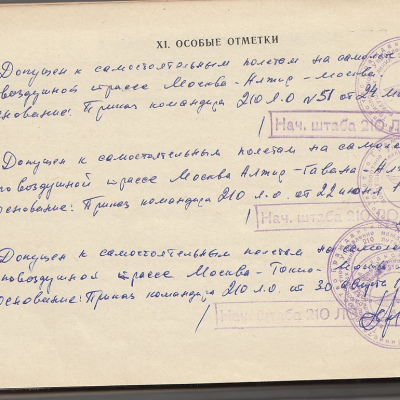 XI. ОСОБЫЕ ОТМЕТКИ
Допущен к самостоятельным полетам на самолет
воздушной трассе Москва-Алжир-Москва.
основание: Приказ командира 210 Л.О №51 от 24
Нач. штаба 210 ЛО
Допущен к самостоятельным полетам на самоле
воздушной трассе Москва Алжир-Гавана-Ал
основание: Приказ командира 210 л.о. от 22 июня 1
Нач. штаба 210 ЛО
Допущен к самостоятельным полетам на самоле
воздушной трассе Москва-Токио-Москва
основание: Приказ командира 210 Л.О. от 30 августа 1
Нач. штаба 210 ЛО